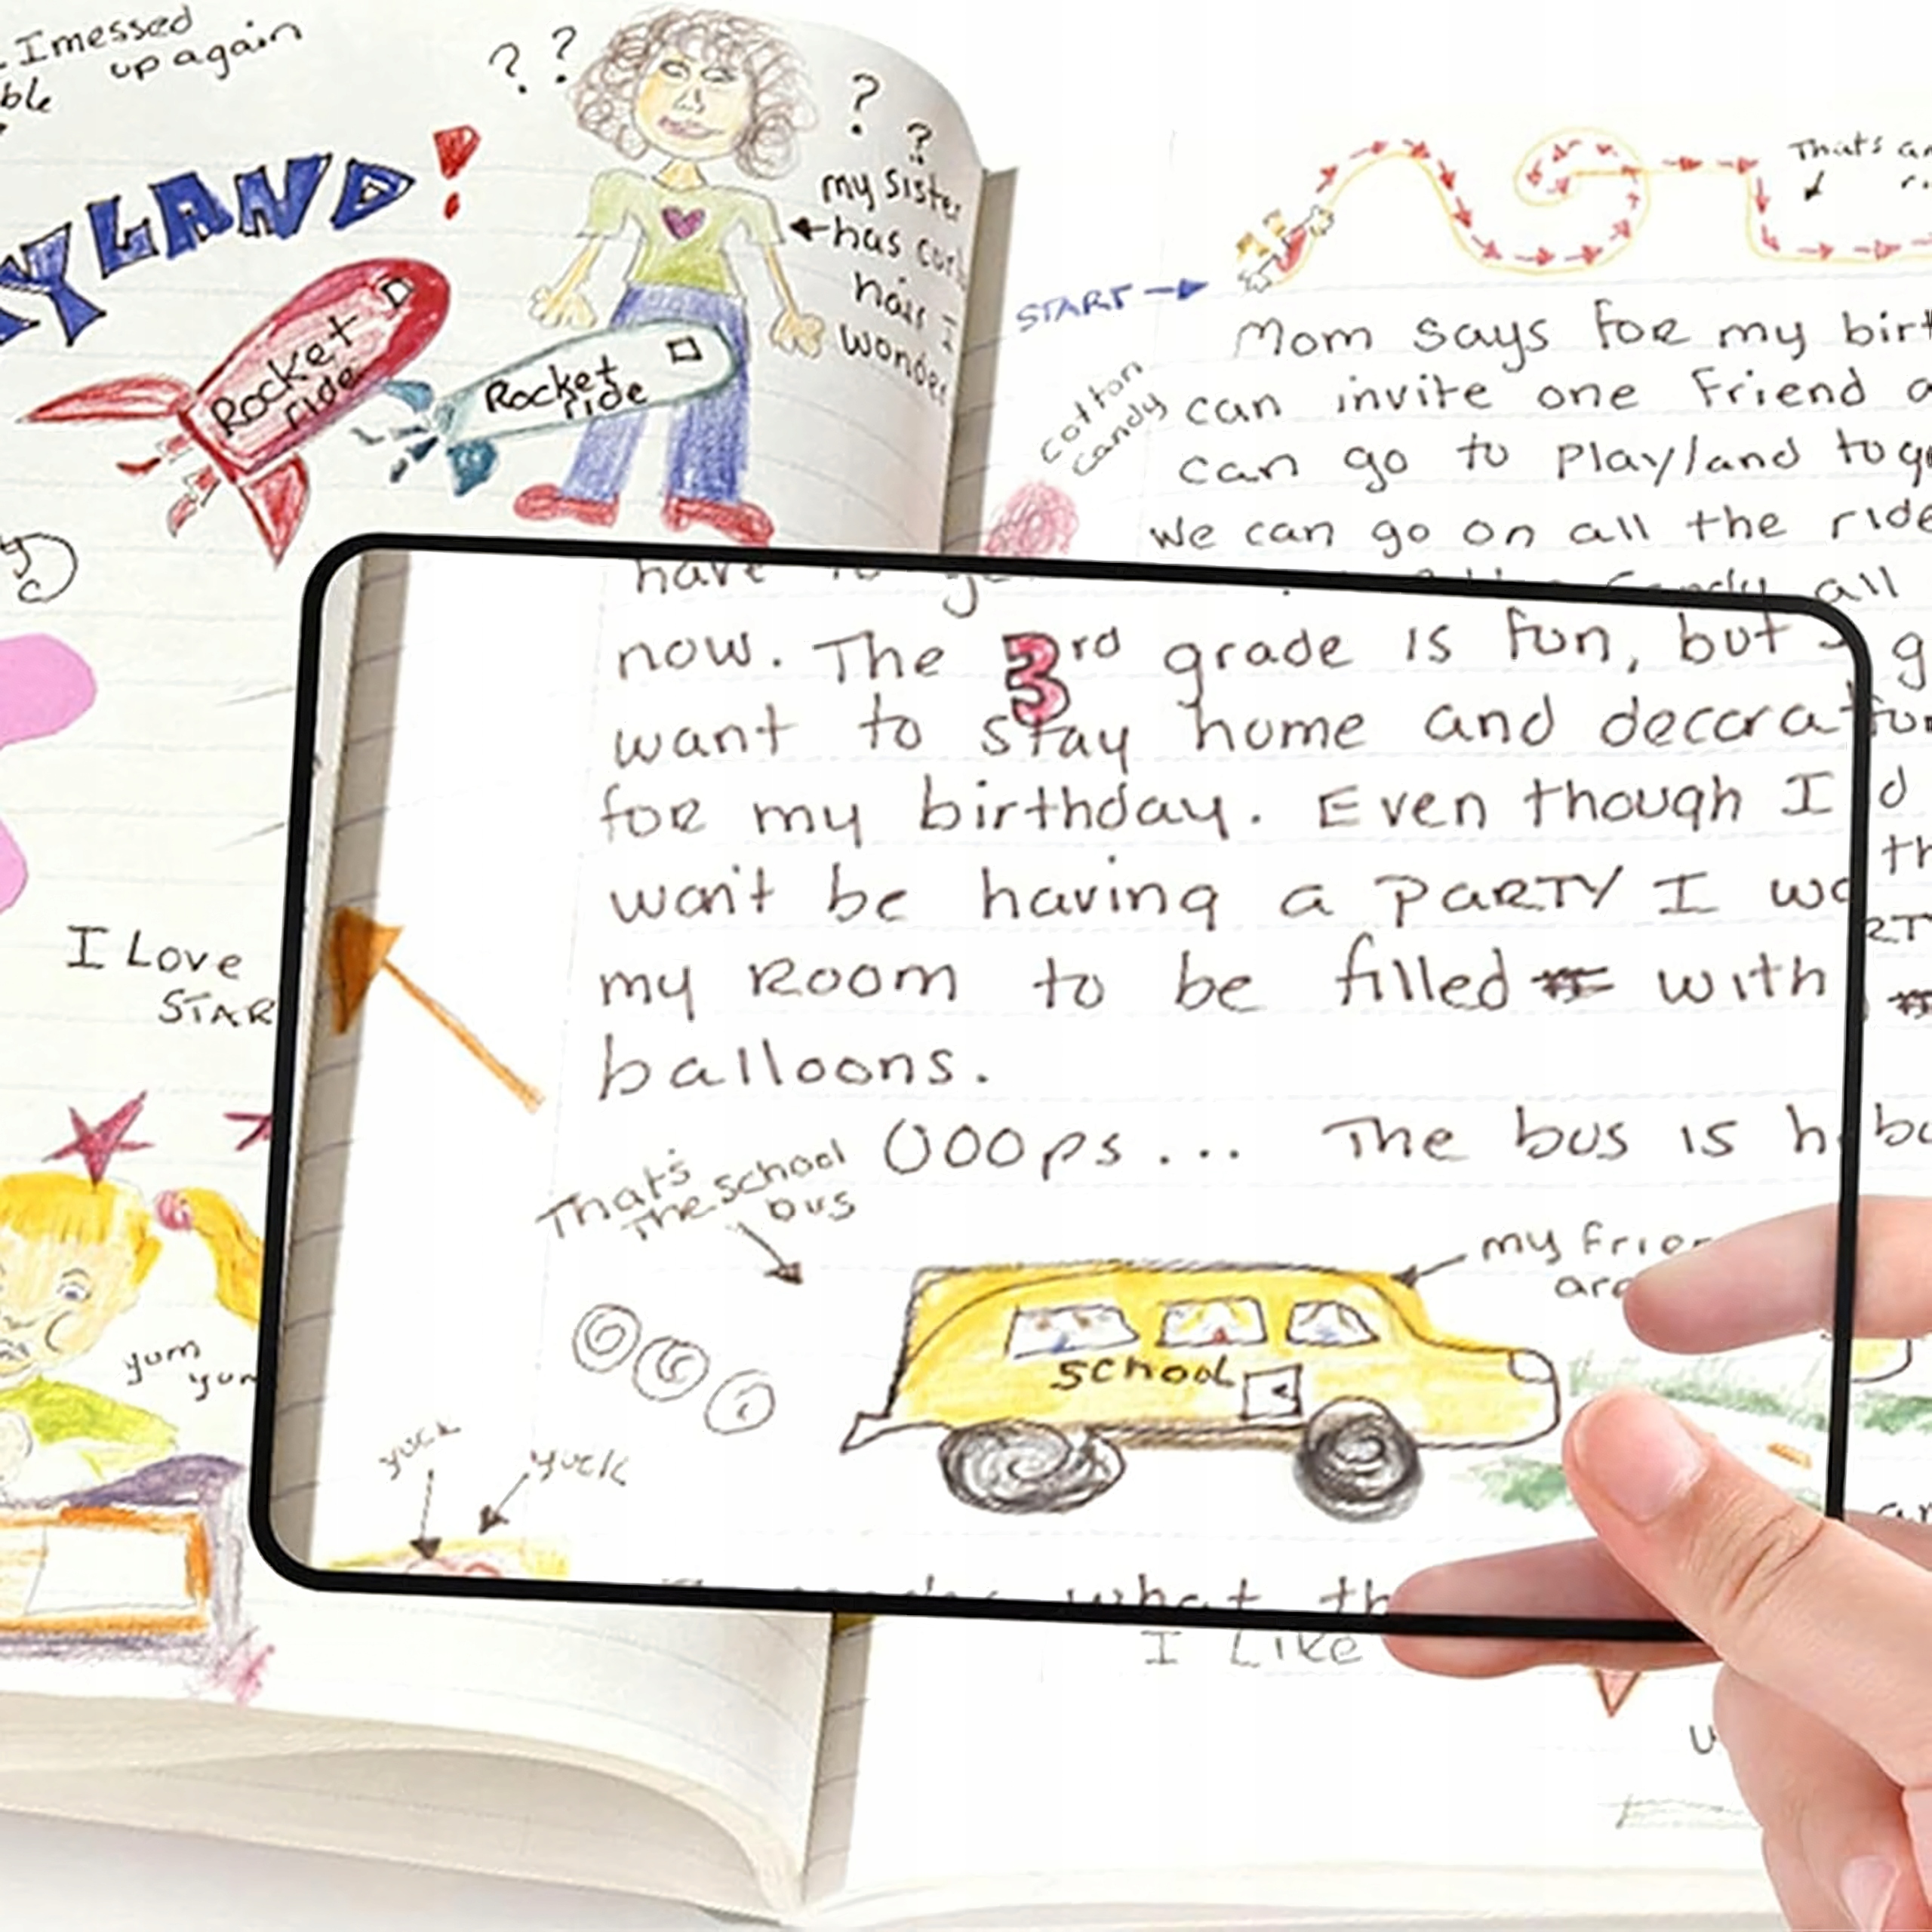 I messed
up again
ble
YLAND!
? ?
?
?
my sister
has
hair I
wonder
Rocket
ride
Rocket
ride
I Love
STAR
yum
yum
That's
START
cotton
candy
Mom says for my birt
can invite one friend a
can go to playland tog
we can go on all the ride
all
have to
now. The 3rd grade is fun, but
want to stay home and decorat
for my birthday. Even though I
won't be having a PARTY I wo
my Room to be filled with
balloons.
OOOps... The bus is h
That's
the school
bus
my frien
are
school
yuck
yuck
what th
I Like